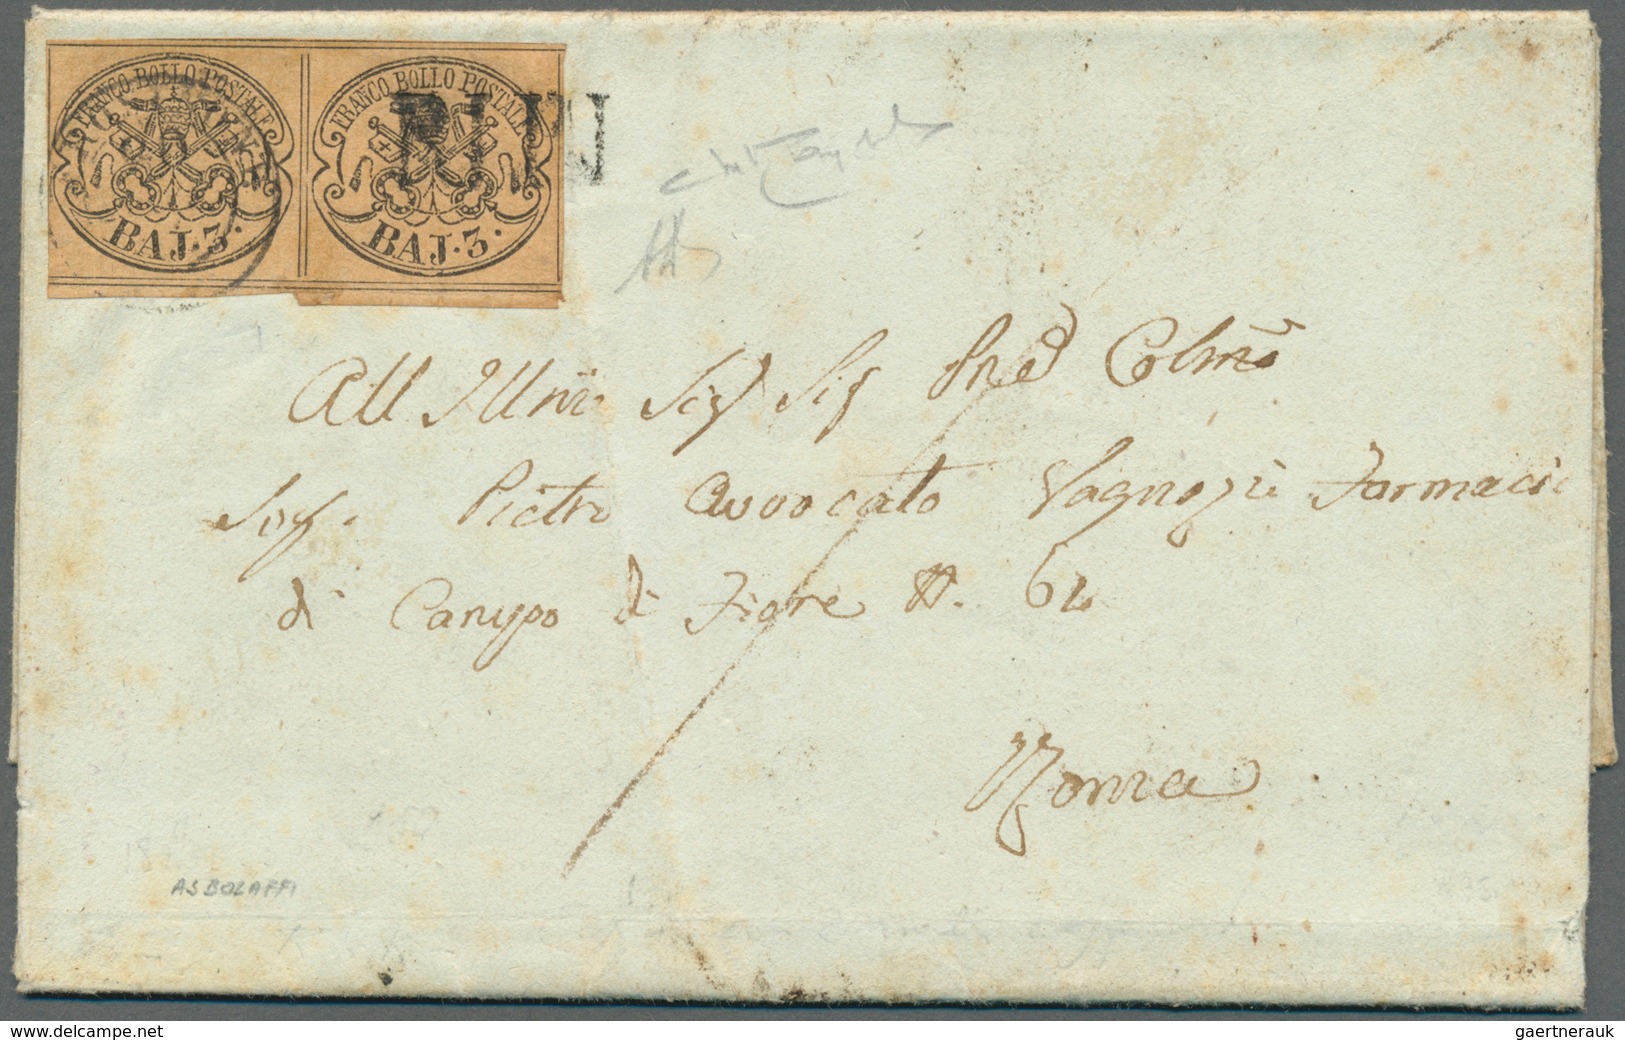 FRANCO BOLLO POSTALE FRANCO BOLLO POSTALE
BAJ. 3. BAJ. 3.
All Illmo Sig Sig Pne Colmo
Sig. Pietro Avvocato Vagnozzi Farmacia
di Campo di Fiore N. 62
Roma
AS BOLAFFI
gaertnerauk